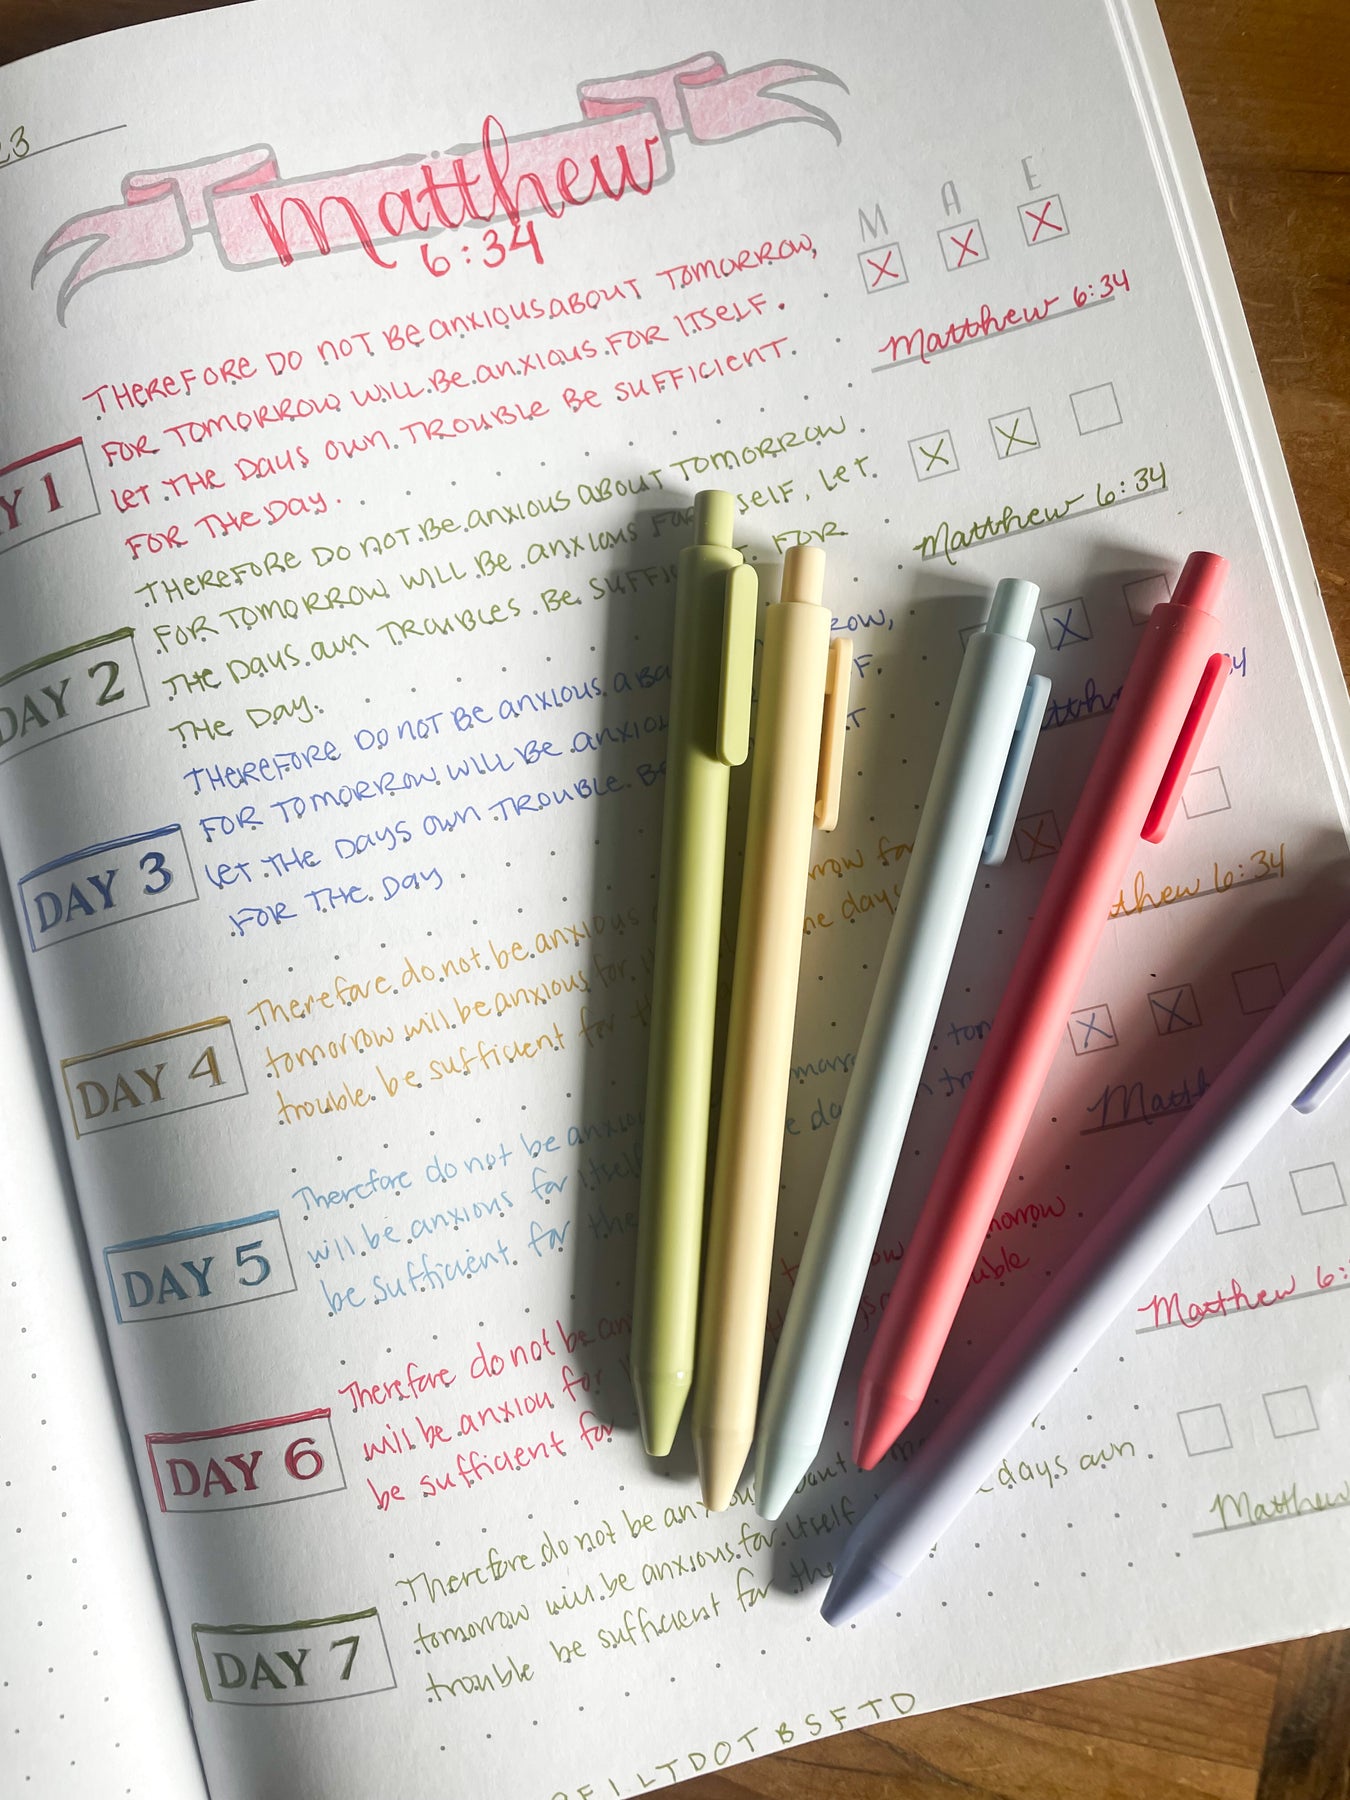 23
Matthew
6:34
M A E
X X X
THEREFORE DO NOT BE anxious ABOUT TOMORROW,
FOR TOMORROW WILL BE anxious FOR ITSELF.
LET THE DAYS OWN TROUBLE BE SUFFICIENT.
FOR THE DAY.
Matthew 6:34
Y 1
X X
THEREFORE DO NOT BE anxious ABOUT TOMORROW
FOR TOMORROW WILL BE anxious FOR SELF, LET
THE DAYS own TROUBLES BE SUFFI FOR
THE DAY.
Matthew 6:34
DAY 2
X
THEREFORE DO NOT BE anxious ABO ROW,
FOR TOMORROW WILL BE anxiou F.
LET THE DAYS OWN TROUBLE BE T
FOR THE DAY
atth 34
DAY 3
X
Therefore do not be anxious row for
tomorrow will be anxious for he days
trouble be sufficient for th
thew 6:34
DAY 4
X X
Therefore do not be anxiou morr tom
will be anxious for itself e da tr
be sufficient for the
Matth
DAY 5
Therefore do not be an morrow
will be anxiou for ouble
be sufficient for
Matthew 6:
DAY 6
Therefore do not be anxiou bout
tomorrow will be anxious for itself days own
trouble be sufficient for the
Matthew
DAY 7
F I L T D O T B S F T D